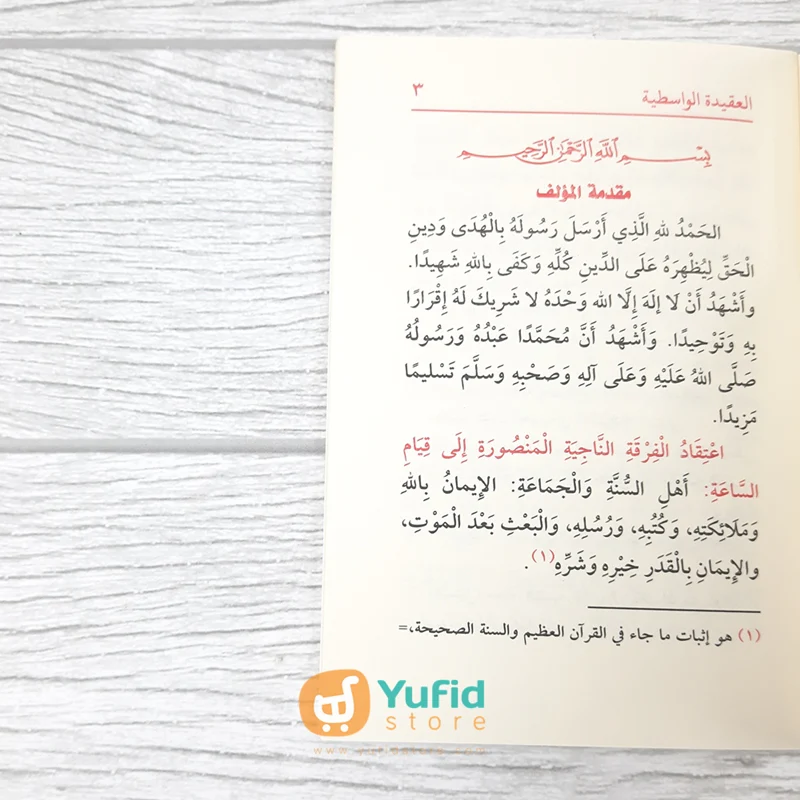 العقيدة الواسطية ٣
بِسْمِ اللَّهِ الرَّحْمَٰنِ الرَّحِيمِ
مقدمة المؤلف
الحَمْدُ للهِ الَّذِي أَرْسَلَ رَسُولَهُ بِالْهُدَى وَدِينِ
الْحَقِّ لِيُظْهِرَهُ عَلَى الدِّينِ كُلِّهِ وَكَفَى بِاللهِ شَهِيدًا.
وأَشْهَدُ أَنْ لَا إِلَهَ إِلَّا الله وَحْدَهُ لا شَرِيكَ لَهُ إِقْرَارًا
بِهِ وَتَوْحِيدًا. وَأَشْهَدُ أَنَّ مُحَمَّدًا عَبْدُهُ وَرَسُولُهُ
صَلَّى اللهُ عَلَيْهِ وَعَلَى آلِهِ وَصَحْبِهِ وَسَلَّمَ تَسْلِيمًا
مَزِيدًا.
اعْتِقَادُ الْفِرْقَةِ النَّاجِيَةِ الْمَنْصُورَةِ إِلَى قِيَامِ
السَّاعَةِ: أَهْلِ السُّنَّةِ وَالْجَمَاعَةِ: الإِيمانُ بِاللهِ
وَمَلَائِكَتِهِ، وَكُتُبِهِ، وَرُسُلِهِ، وَالْبَعْثِ بَعْدَ الْمَوْتِ،
والإِيمَانِ بِالْقَدَرِ خِيْرِهِ وَشَرِّهِ(١).
(١) هو إثبات ما جاء في القرآن العظيم والسنة الصحيحة،=
Yufid
store